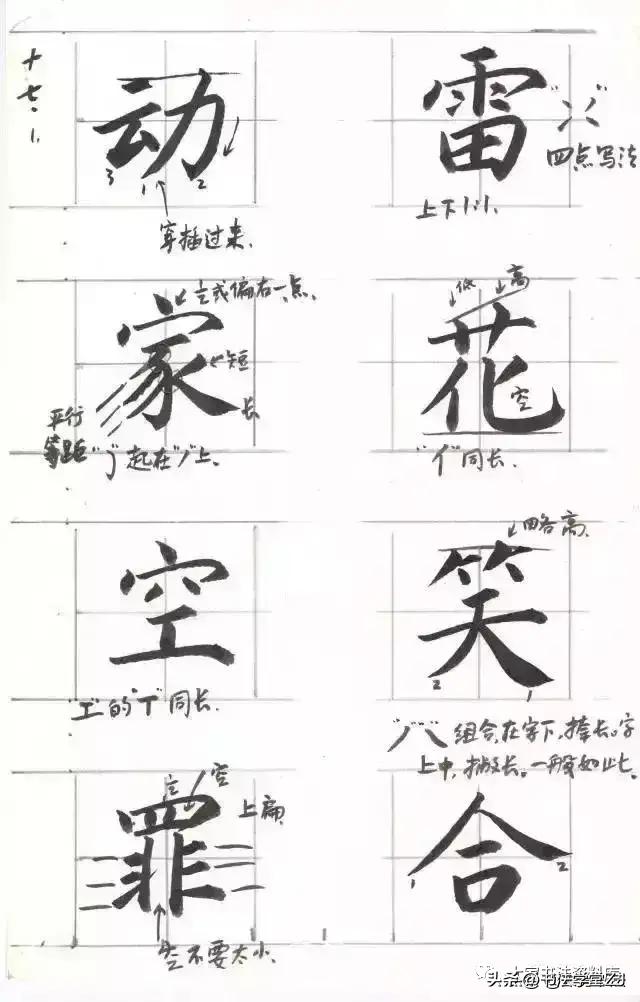 十七.1.
动
3 1 2
穿插过来.
雷
"丷八"
四点写法
上下1:1.
家
偏右一点.
短
长
平行
等距
"亅"起在"丿"上.
花
低 高
空
"亻"同长.
空
"工"的"丅"同长.
笑
略高.
2 1
"八"组合,在字下,捺长。字
上中,撇长。一般如此。
罪
空
上扁
空不要太小.
合
1 2
头条@书法学堂